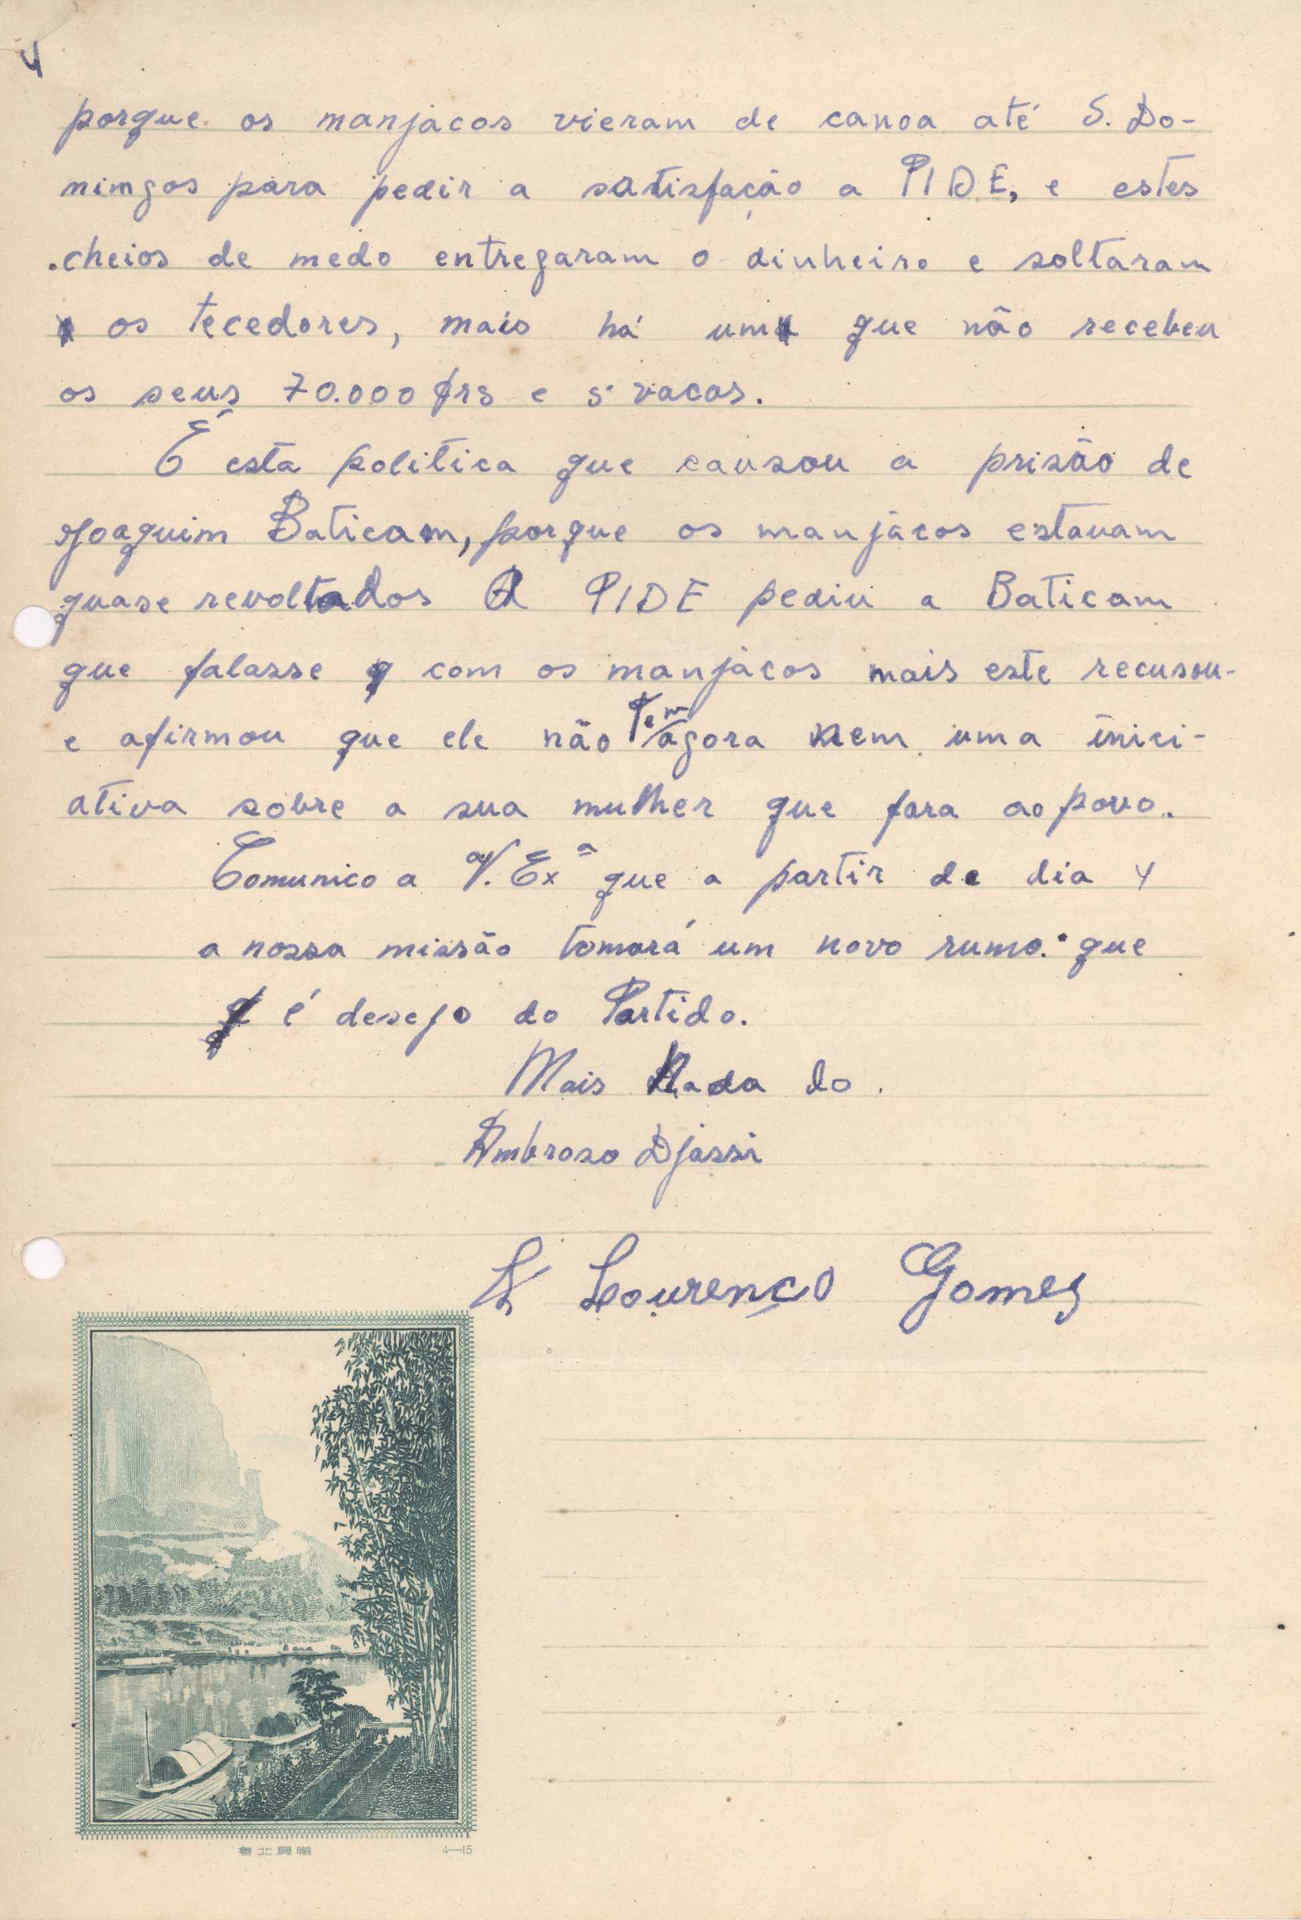 4
porque os manjacos vieram de canoa até S. Do-
mimgos para pedir a satisfação a PIDE, e estes
cheios de medo entregaram o dinheiro e soltaram
os tecedores, mais há um que não recebeu
os seus 70.000 frs e 5 vacas.
É esta politica que causou a prisão de
Joaquim Baticam, porque os manjácos estavam
quase revoltados A PIDE pediu a Baticam
que falasse com os manjácos mais este recusou-
e afirmou que ele não tem agora nem uma inici-
ativa sobre a sua mulher que fara ao povo.
Comunico a V. Exª que a partir de dia 4
a nossa missão tomará um novo rumo que
é desejo do Partido.
Mais Nada do.
Ambroso Djassi
Lourenço Gomes
4—15